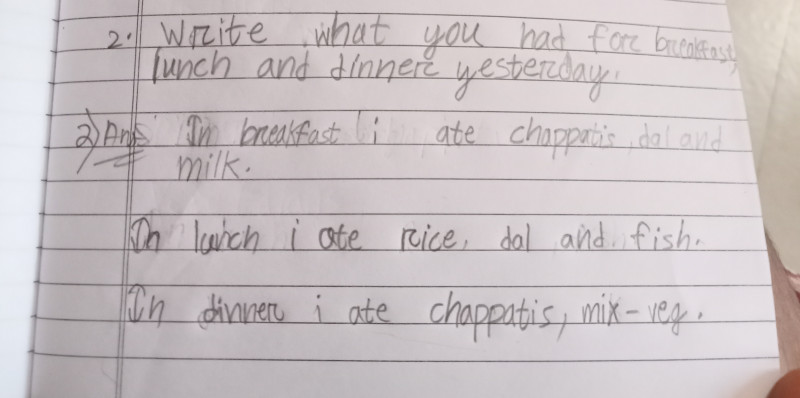 2. Write what you had for breakfast,
lunch and dinner yesterday.
2) Ans In breakfast i ate chappatis, dal and
milk.
In lunch i ate rice, dal and fish.
In dinner i ate chappatis, mix-veg.